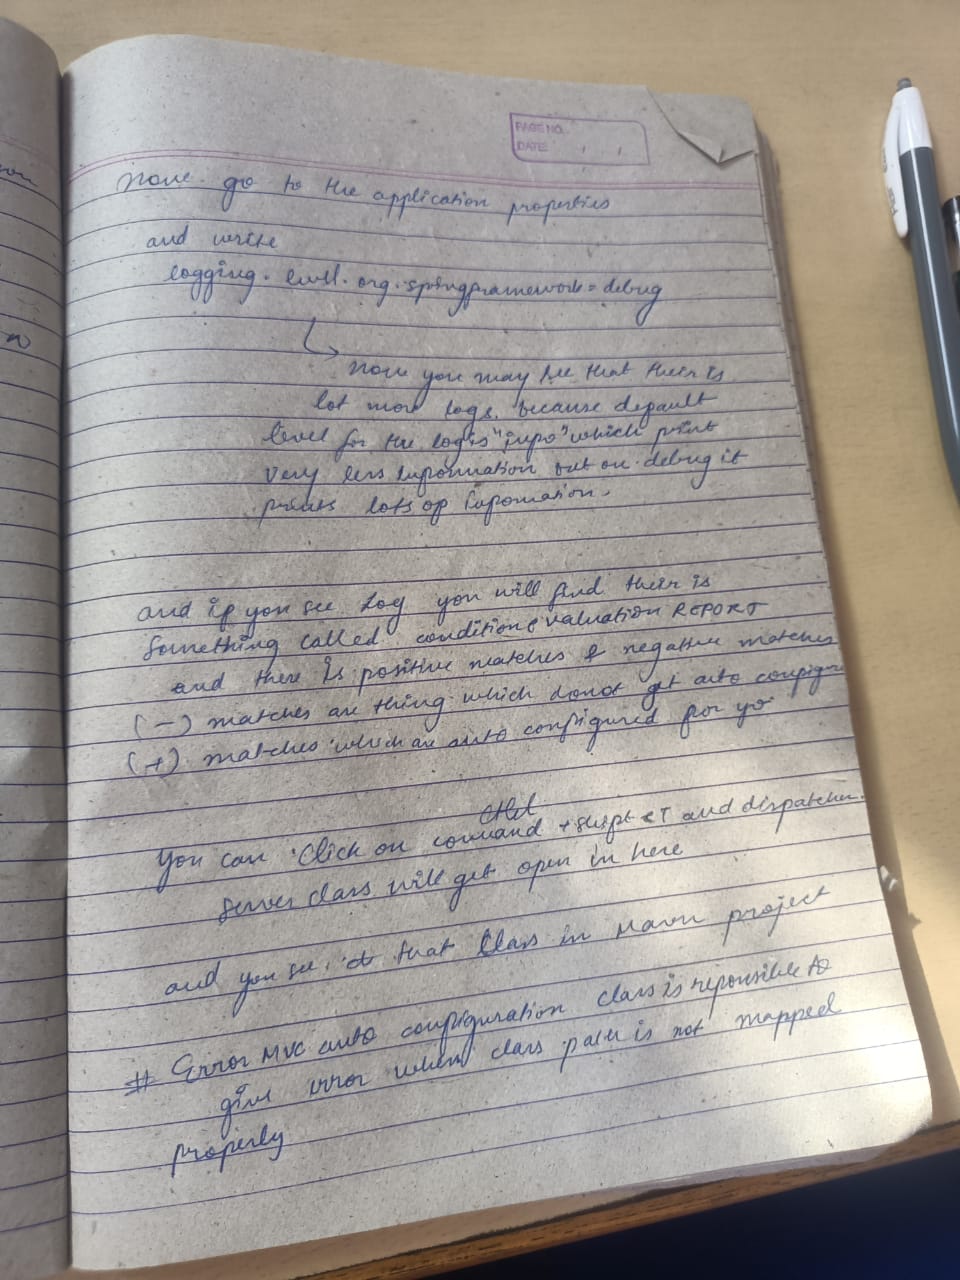 PAGE NO.
DATE: / /
now go to the application properties
and write
logging.level.org.springframework=debug
now you may see that their is
lot more logs, because default
level for the log is "info" which print
very less information but on debug it
prints lots of information.
and if you see log you will find their is
something called condition evaluation REPORT
and there is positive matches & negative matches
(-) matches are thing which donot get auto configure
(+) matches which are auto configured for yo
ctrl
you can click on command + shift + T and dispatcher
server class will get open in here
and you see that class in Maven project
# Error MVC auto configuration class is reponsible to
give error when class path is not mapped
properly